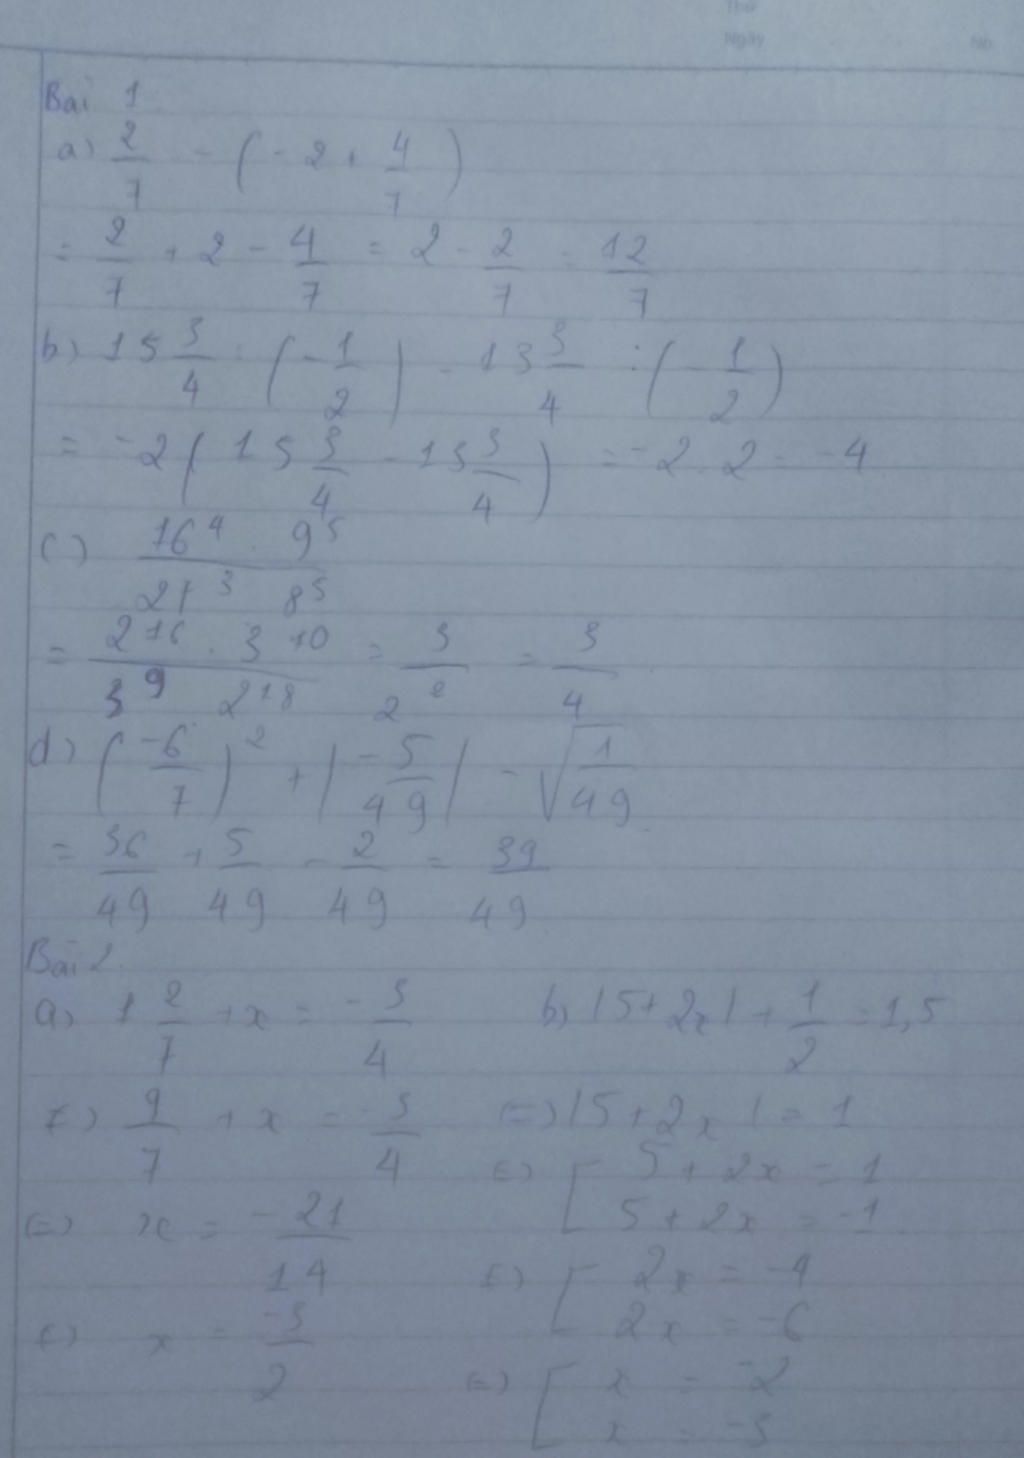 Thứ
Ngày No.
Bài 1
a) 2/7 - (-2 + 4/7)
= 2/7 + 2 - 4/7 = 2 - 2/7 = 12/7
b) 15 3/4 : (-1/2) - 13 3/4 : (-1/2)
= -2 (15 3/4 - 13 3/4) = -2 . 2 = -4
c) 16^4 . 9^5 / 27^3 8^5
= 2^16 . 3^10 / 3^9 2^18 = 3/2^2 = 3/4
d) (-6/7)^2 + |-5/49| - √(1/49)
= 36/49 + 5/49 - 2/49 = 39/49
Bài 2
a) 1 2/7 + x = -3/4 b) |5+2x| + 1/2 = 1,5
(=) 9/7 + x = -3/4 (=) |5+2x| = 1
(=) [ 5 + 2x = 1
(=) x = -21/14 5 + 2x = -1
(=) [ 2x = -4
(=) x = -3/2 2x = -6
(=) [ x = -2
x = -3